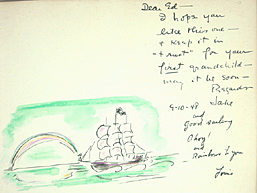 Dear Ed—
I hope you
like this one—
& keep it in
"trust" for your
first grandchild—
may it be soon—
Regards
Jake
9-10-48
and
Good sailing
Ahoy!
and
Rainbows to you